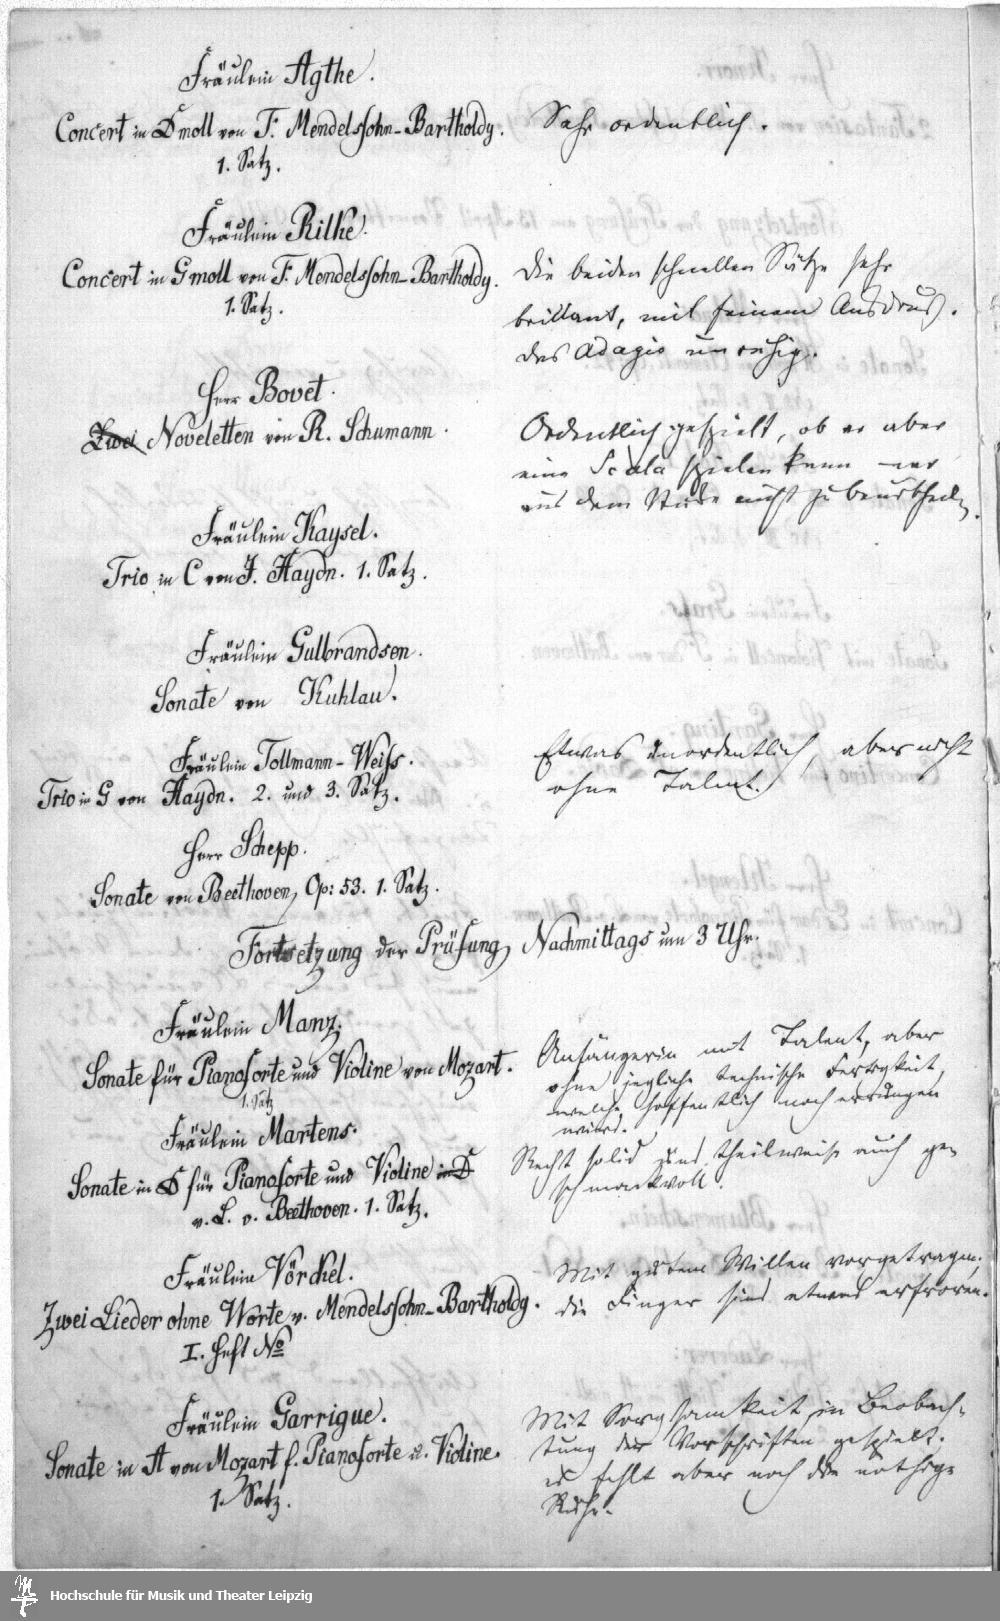 Fräulein Agthe.
Concert in D moll von F. Mendelssohn-Bartholdy.
1. Satz.
Sehr ordentlich.
Fräulein Rilke.
Concert in G moll von F. Mendelssohn-Bartholdy.
1. Satz.
Die beiden schnellen Sätze sehr
brillant, mit feinem Ausdruck.
das Adagio unruhig.
Herr Bovet.
Zwei Noveletten von R. Schumann.
Ordentlich gespielt, ob er aber
eine Scala spielen kann war
aus dem Stücke nicht zu beurtheilen.
Fräulein Kaysel.
Trio in C von J. Haydn. 1. Satz.
Fräulein Gulbrandsen.
Sonate von Kuhlau.
Fräulein Tollmann-Weiss.
Trio in G von Haydn. 2. und 3. Satz.
Etwas unordentlich, aber nicht
ohne Talent.
Herr Schepp.
Sonate von Beethoven, Op: 53. 1. Satz.
Fortsetzung der Prüfung, Nachmittags um 3 Uhr.
Fräulein Manz.
Sonate für Pianoforte und Violine von Mozart.
1. Satz
Anfängerin mit Talent, aber
ohne jegliche technische Fertigkeit,
welche hoffentlich noch errungen
wird.
Fräulein Martens.
Sonate in D für Pianoforte und Violine in D
v. L. v. Beethoven. 1. Satz.
Recht solid und theilweise auch ge-
schmackvoll.
Fräulein Vörckel.
Zwei Lieder ohne Worte v. Mendelssohn-Bartholdy.
I. Heft No
Mit gutem Willen vorgetragen;
die Finger sind etwas erfroren.
Fräulein Garrigue.
Sonate in A von Mozart f. Pianoforte u. Violine.
1. Satz.
Mit Sorgsamkeit in Beobach-
tung der Vorschriften gespielt.
es fehlt aber noch die nöthige
Ruhe.
Hochschule für Musik und Theater Leipzig